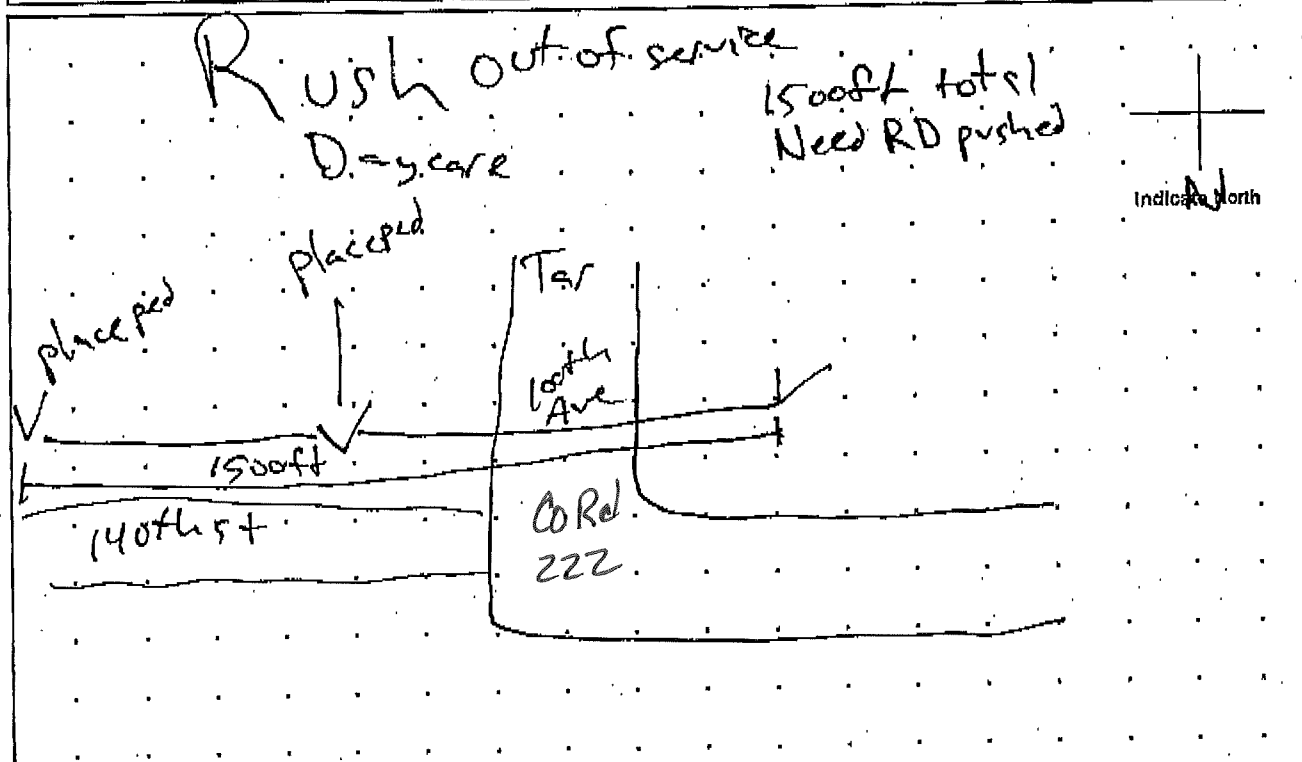 Rush out of service
Daycare
1500ft total
Need RD pushed
N
Indicate North
place ped
place ped
Tar
100th
Ave
1500ft
140th st
CoRd
222